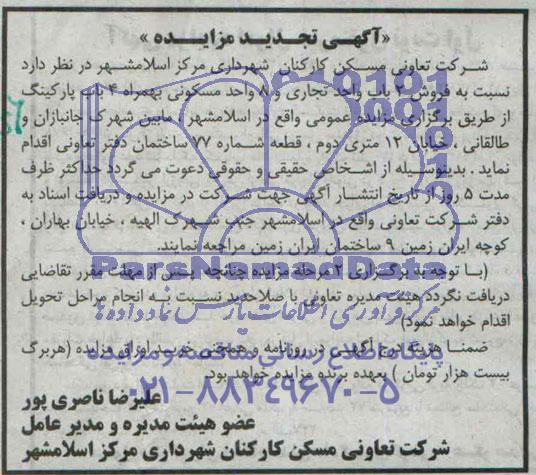 «آگهی تجدید مزایده»
شرکت تعاونی مسکن کارکنان شهرداری مرکز اسلامشهر در نظر دارد
نسبت به فروش ۲ باب واحد تجاری و ۸ واحد مسکونی بهمراه ۴ باب پارکینگ
از طریق برگزاری مزایده عمومی واقع در اسلامشهر ، مابین شهرک جانبازان و
طالقانی ، خیابان ۱۲ متری دوم ، قطعه شماره ۷۷ ساختمان دفتر تعاونی اقدام
نماید . بدینوسیله از اشخاص حقیقی و حقوقی دعوت می گردد حداکثر ظرف
مدت ۵ روز از تاریخ انتشار آگهی جهت شرکت در مزایده و دریافت اسناد به
دفتر شرکت تعاونی واقع در اسلامشهر جنب شهرک الهیه ، خیابان بهاران ،
کوچه ایران زمین ۹ ساختمان ایران زمین مراجعه نمایند.
ParsNamadData
(با توجه به برگزاری ۲ مرحله مزایده چنانچه پس از مهلت مقرر تقاضایی
دریافت نگردد هیئت مدیره تعاونی با صلاحدید نسبت به انجام مراحل تحویل
اقدام خواهد نمود)
مرکز فرآوری اطلاعات پارس نماد داده ها
ضمنا هزینه درج آگهی در روزنامه و همچنین خرید اوراق مزایده (هربرگ
پایگاه اطلاع رسانی مناقصه و مزایده
بیست هزار تومان ) بعهده برنده مزایده خواهد بود.
۰۲۱-۸۸۳۴۹۶۷۰-۵
علیرضا ناصری پور
عضو هیئت مدیره و مدیر عامل
شرکت تعاونی مسکن کارکنان شهرداری مرکز اسلامشهر